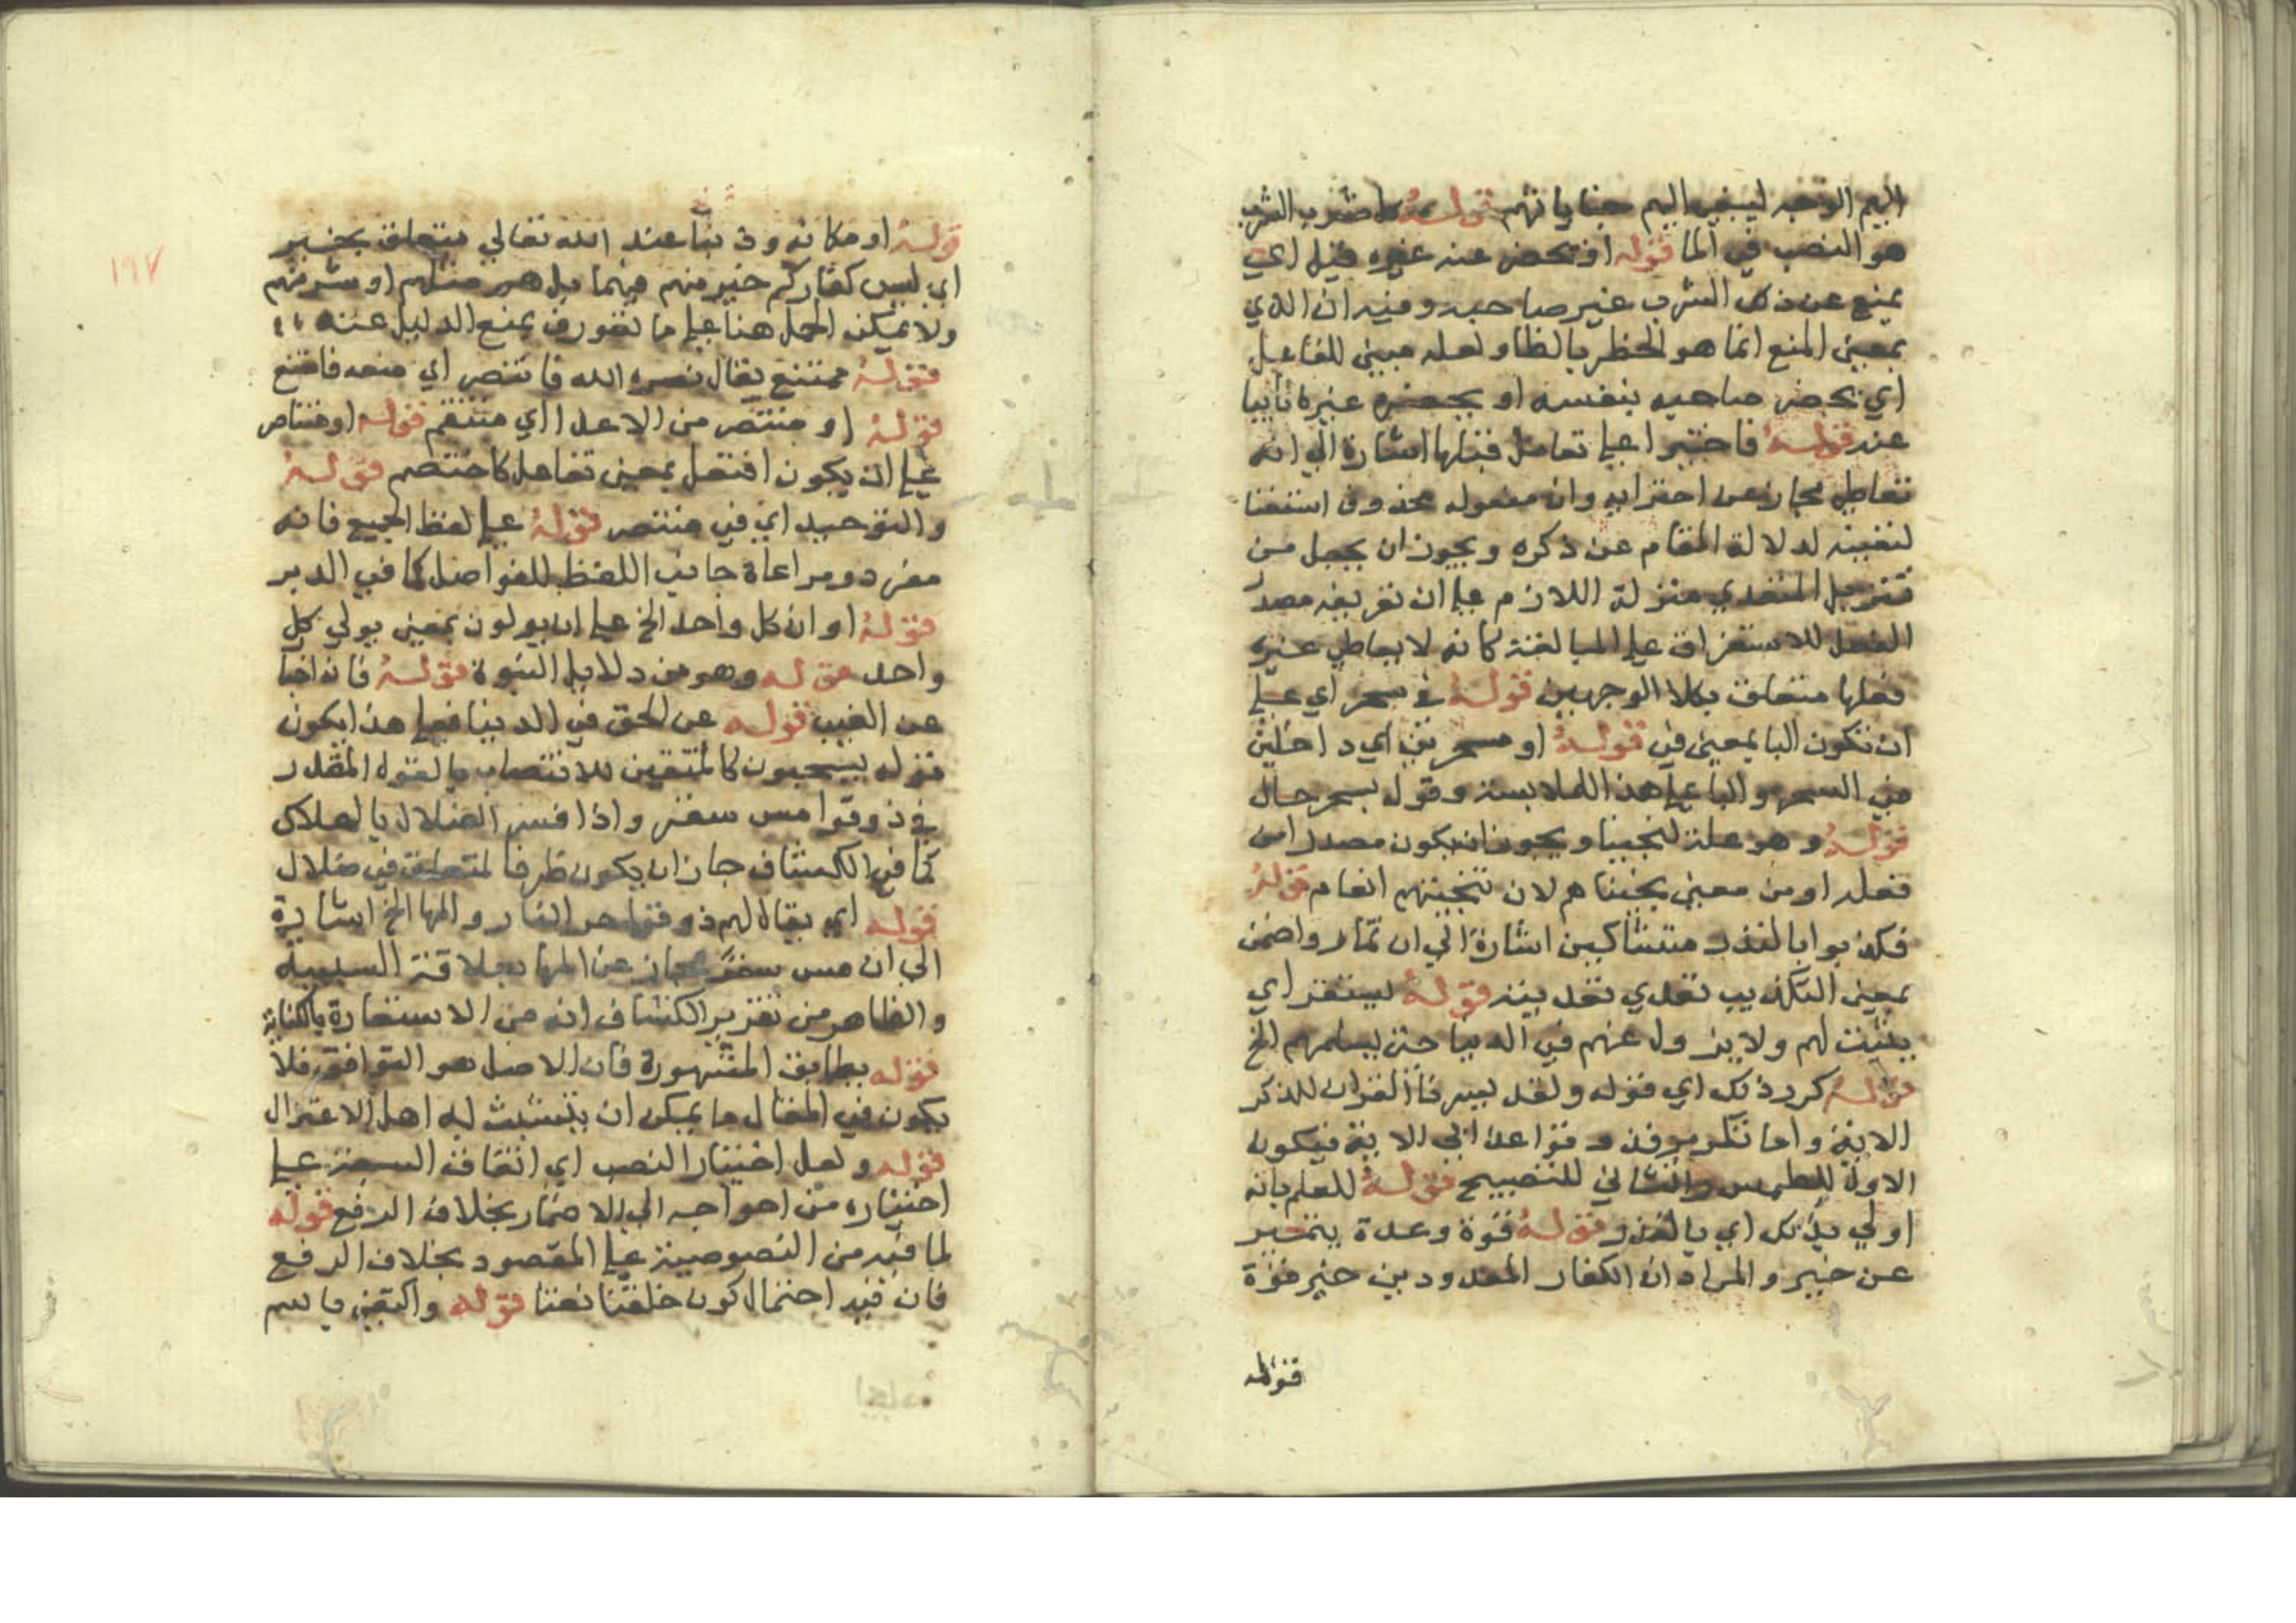 اليهم الاوجه ليبغي اليهم قوله كل شرب الشرب
هو النصب في الما قوله او يحضر عنه غيره قيل اي
يمنع عن ذلك الشرب غير صاحبه وفيه ان الذي
بمعنى المنع انما هو الحظر بالظا ولعله مبني للفاعل
اي يحضر صاحبه بنفسه او يحضره غيره نايبا
عنه قوله فاجترا على تعاطى قتلها اشارة الى انه
تعاطى مجاز عن اجترا به وان مفعوله محذوف استغنا
لتعينه لدلالة المقام عن ذكره ويجوز ان يجعل من
تنزيل المتعدي منزلة اللازم على ان تعريف مصدر
الفعل للاستغراق على المبالغة كانه لا يعاطي غيره
فعلها متعلق بكلا الوجهين قوله في سحر اي على
ان تكون البا بمعنى في قوله او مسحرين اي داخلين
في السحر والبا على هذا للملابسة وقوله بسحر حال
قوله وهو علة لنجينا ويجوز ان يكون مصدرا من
فعله او من معنى نجيناهم لان تنجيتهم انعام قوله
فكذبوا بالنذر متشاكين اشارة الى ان تماروا ضمن
بمعنى التكذيب تعدي تعديته قوله ليستقر اي
يثبت لهم ولا يزول عنهم في الدنيا حتى يسلمهم الخ
قوله كرر ذلك اي قوله ولقد يسرنا القران للذكر
الاية واما تكرير فذوقوا عذابي الاية فيكون
الاول للطمس والثاني للتصبيح قوله للعلم بانه
اولي بذلك اي بالغرق قوله قوة وعدة يتميز
عن خير والمراد ان الكفار المعدودين خير قوة
قوله
١٩٧
قوله او مكانة ودينا عند الله تعالى متعلق بخير
اي ليس كفاركم خير منهم فيهما بل هم مثلهم او شر منهم
ولا يمكن الحمل هنا على ما تقرر في يمنع الدليل عنه
قوله ممتنع يقال نصره الله فانتصر اي منعه فامتنع
قوله او منتصر من الاعدا اي منتقم قوله او متناصر
على ان يكون افتعل بمعنى تفاعل كاختصم قوله
والتوحيد اي في منتصر قوله على لفظ الجميع فانه
مفرد ومراعاة جانب اللفظ للفواصل كما في الدبر
قوله او ان كل واحد الخ على ان يولون بمعنى يولي كل
واحد قوله وهو من دلايل النبوة قوله فانه اخبا
عن الغيب قوله عن الحق في الدنيا فعلى هذا يكون
قوله يسحبون كالمتقين للانتصاب بالقول المقدر
في ذوقوا مس سقر واذا فسر الضلال بالهلاك
كما في الكشاف جاز ان يكون ظرفا لمتعلق في ضلال
قوله اي يقال لهم ذوقوا حر النار والمها الخ اشارة
الى ان مس سقر مجاز عن المها بعلاقة السببية
والظاهر من تقرير الكشاف انه من الاستعارة بالكناية
قوله يطابق المشهورة فان الاصل هو التوافق فلا
يكون في المقال ما يمكن ان يتشبث به اهل الاعتزال
قوله ولعل اختيار النصب اي اتفاق السبعة على
اختياره من احواجه الى الاضمار بخلاف الرفع قوله
لما فيه من النصوصية على المقصود بخلاف الرفع
فان فيه احتمال كون خلقنا نعتا قوله والتقى باسم